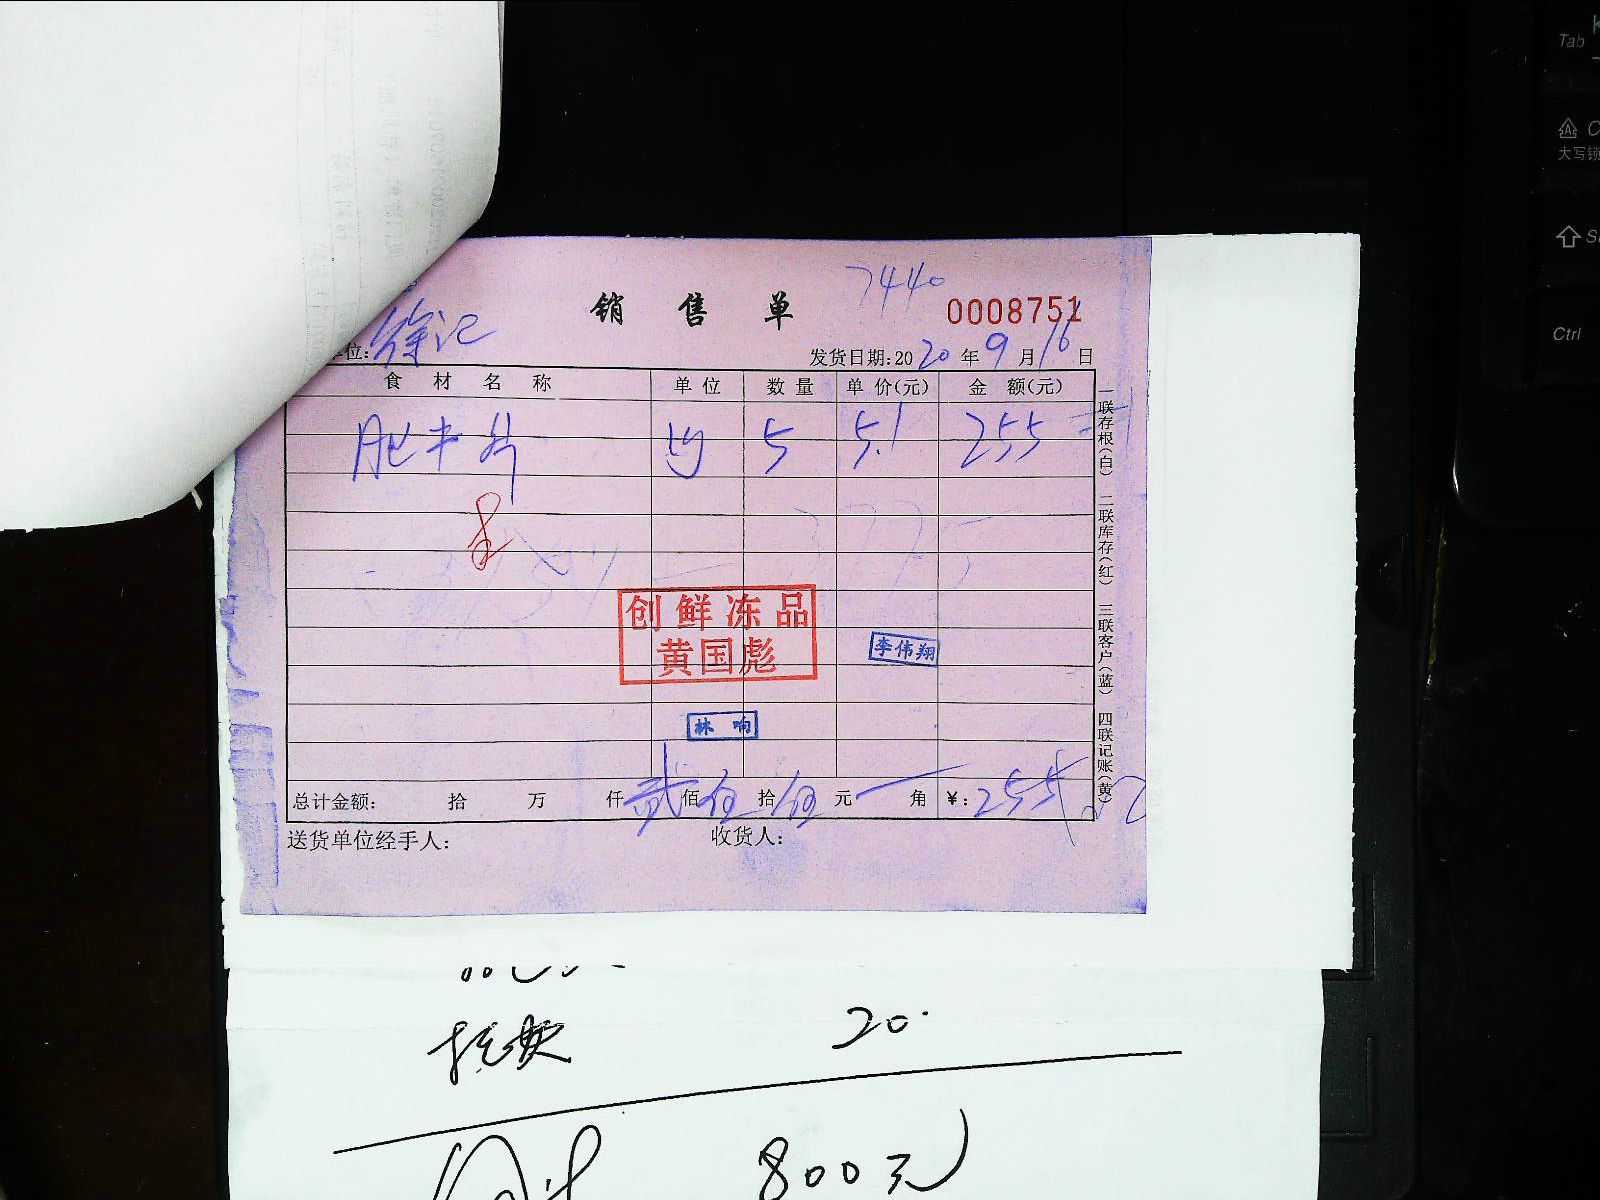 销售单
7440
0008751
位:徐记
发货日期:2020年9月16日
食材名称 单位 数量 单价(元) 金额(元)
肥牛片 5 51 255
创鲜冻品
黄国彪
李伟翔
林响
总计金额: 拾 万 仟贰佰伍拾伍元 角 ¥:255.00
送货单位经手人: 收货人:
一联存根(白) 二联库存(红) 三联客户(蓝) 四联记账(黄)
20.
800元
Tab
大写锁
Ctrl